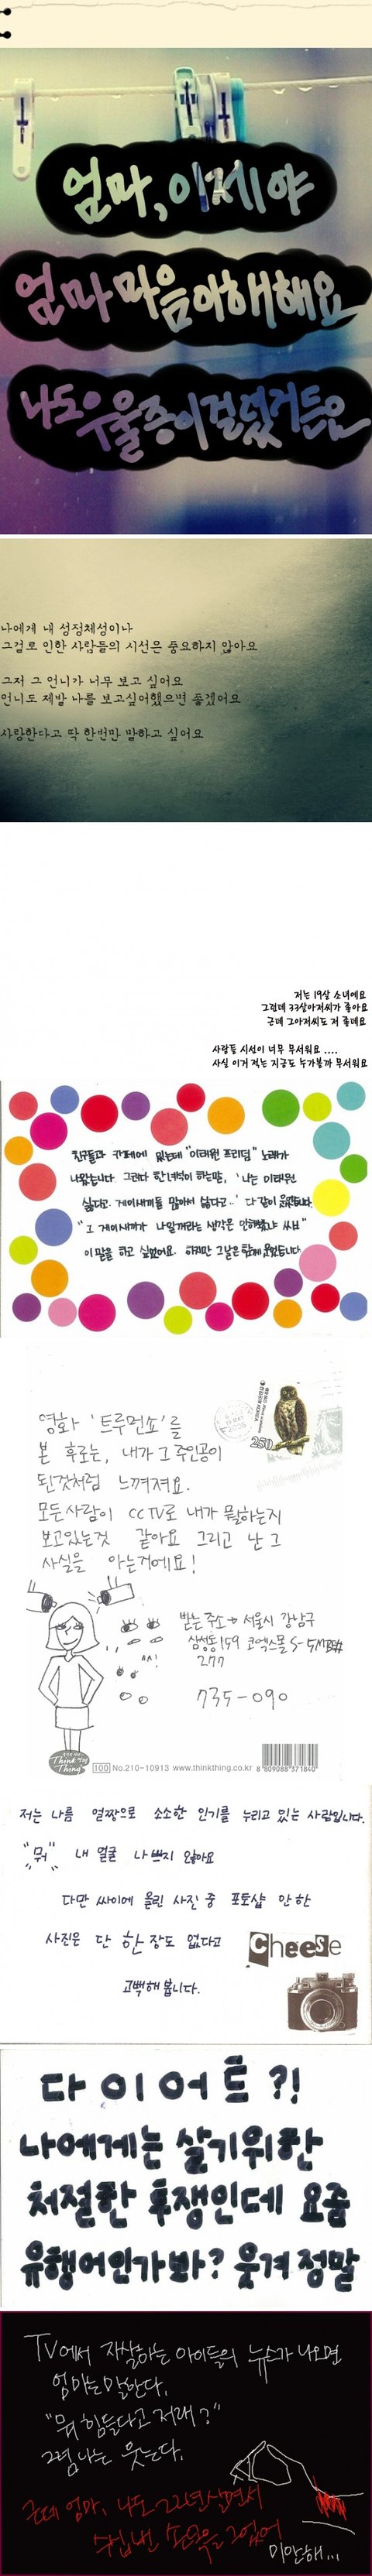 엄마, 이제야
엄마 마음 이해해요
나도 우울증이 걸렸거든요
나에게 내 성정체성이나
그걸로 인한 사람들의 시선은 중요하지 않아요
그저 그 언니가 너무 보고 싶어요
언니도 제발 나를 보고싶어했으면 좋겠어요
사랑한다고 딱 한번만 말하고 싶어요
저는 19살 소녀예요
그런데 33살아저씨가 좋아요
근데 그아저씨도 저 좋데요
사람들 시선이 너무 무서워요 ....
사실 이거 적는 지금도 누가볼까 무서워요
친구들과 카페에 있는데 "이태원 프리덤" 노래가
나왔습니다. 그러다 한 녀석이 하는말, '나는 이태원
싫다고. 게이새끼들 많아서 싫다고..' 다 같이 웃었습니다.
"그 게이새끼가 나일꺼라는 생각은 안해봤냐 씨발"
이 말을 하고 싶었어요. 하지만 그날은 함께 웃었습니다.
영화 '트루먼쇼'를
본 후로는, 내가 그 주인공이
된것처럼 느껴져요.
모든 사람이 CCTV로 내가 뭘하는지
보고있는것 같아요 그리고 난 그
사실을 아는거에요!
250
받는주소→ 서울시 강남구
삼성동 159 코엑스몰
277
735-090
Think Thing
100 No.210-10913 www.thinkthing.co.kr 8 809088 371840
저는 나름 얼짱으로 소소한 인기를 누리고 있는 사람입니다.
"뭐" 내 얼굴 나쁘지 않아요
다만 싸이에 올린 사진 중 포토샵 안 한
사진은 단 한 장도 없다고
고백해 봅니다.
Cheese
다이어트?!
나에게는 살기위한
처절한 투쟁인데 요즘
유행어인가봐? 웃겨 정말
TV에서 자살하는 아이들의 뉴스가 나오면
엄마는 말한다.
"뭐 힘들다고 저래?"
그럼 나는 웃는다.
근데 엄마, 나도 22년 살면서
수십번 손목을 그었어
미안해...